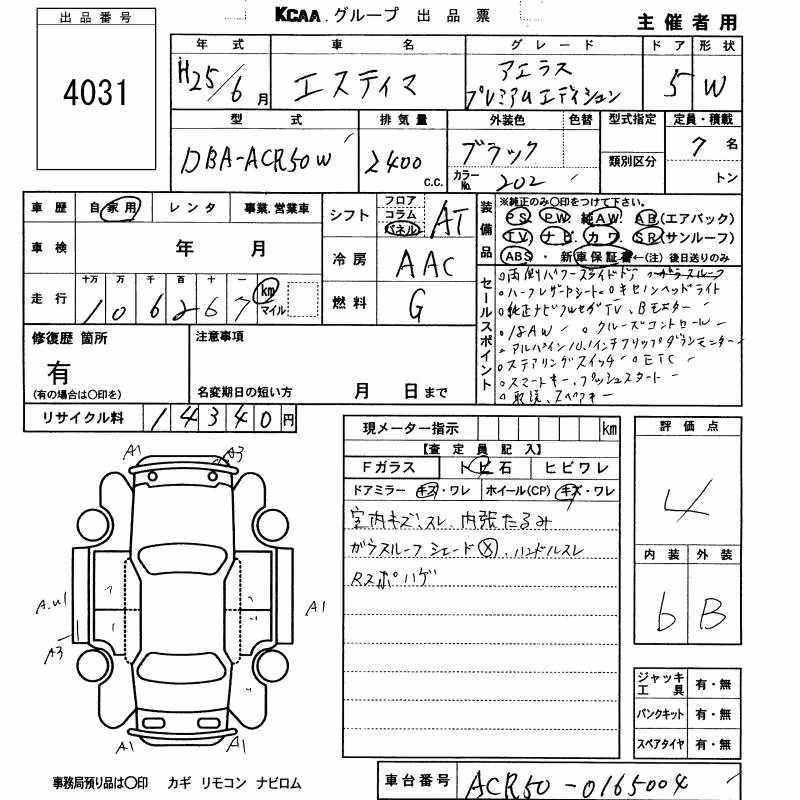 KCAA.グループ 出品票
主催者用
出品番号
4031
年式 車名 グレード ドア 形状
H25/6月 エスティマ アエラス プレミアムエディション 5 W
型式 排気量 外装色 色替 型式指定 定員・積載
DBA-ACR50W 2400 c.c. ブラック 7名
カラーNo. 202 類別区分 トン
車歴 自家用 レンタ 事業.営業車
車検 年 月
走行 十万 万 千 百 十 一
1 0 6 2 6 7 km マイル
シフト フロア コラム パネル AT
冷房 AAC
燃料 G
装備品 ※純正のみ〇印をつけて下さい。
PS. PW. 純AW. AB.(エアバック)
TV. ナビ. カワ. SR(サンルーフ)
ABS ・ 新車保証書←(注)後日送りのみ
セールスポイント
○両側パワースライドドア ○ガラスルーフ
○ハーフレザーシート ○キセノンヘッドライト
○純正ナビフルセグTV、Bモニター
○18AW ○クルーズコントロール
○アルパイン10.1インチフリップダウンモニター
○ステアリングスイッチ ○ETC
○スマートキー、プッシュスタート
○取説、スペアキー
修復歴 箇所
有
(有の場合は〇印を)
注意事項
名変期日の短い方 月 日まで
リサイクル料 14340円
現メーター指示 km
【査定員記入】
Fガラス トビ石 ヒビワレ
ドアミラー キズ・ワレ ホイール(CP) キズ・ワレ
室内キズ、スレ、内張たるみ
ガラスルーフシェード X、ハンドルスレ
Rスポハゲ
評価点
4
内装 外装
b B
ジャッキ工具 有・無
パンクキット 有・無
スペアタイヤ 有・無
A1 A3
A.U1 A1
A3
A1 A1
事務局預り品は〇印 カギ リモコン ナビロム
車台番号 ACR50-0165004